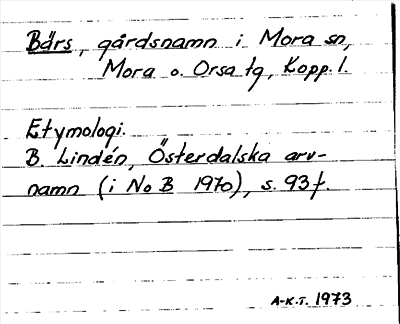 Bärs, gårdsnamn i Mora sn,
Mora o. Orsa tg, Kopp. l.
Etymologi.
B. Lindén, Österdalska arv-
namn (i NoB 1970), s. 93f.
A-K.T. 1973